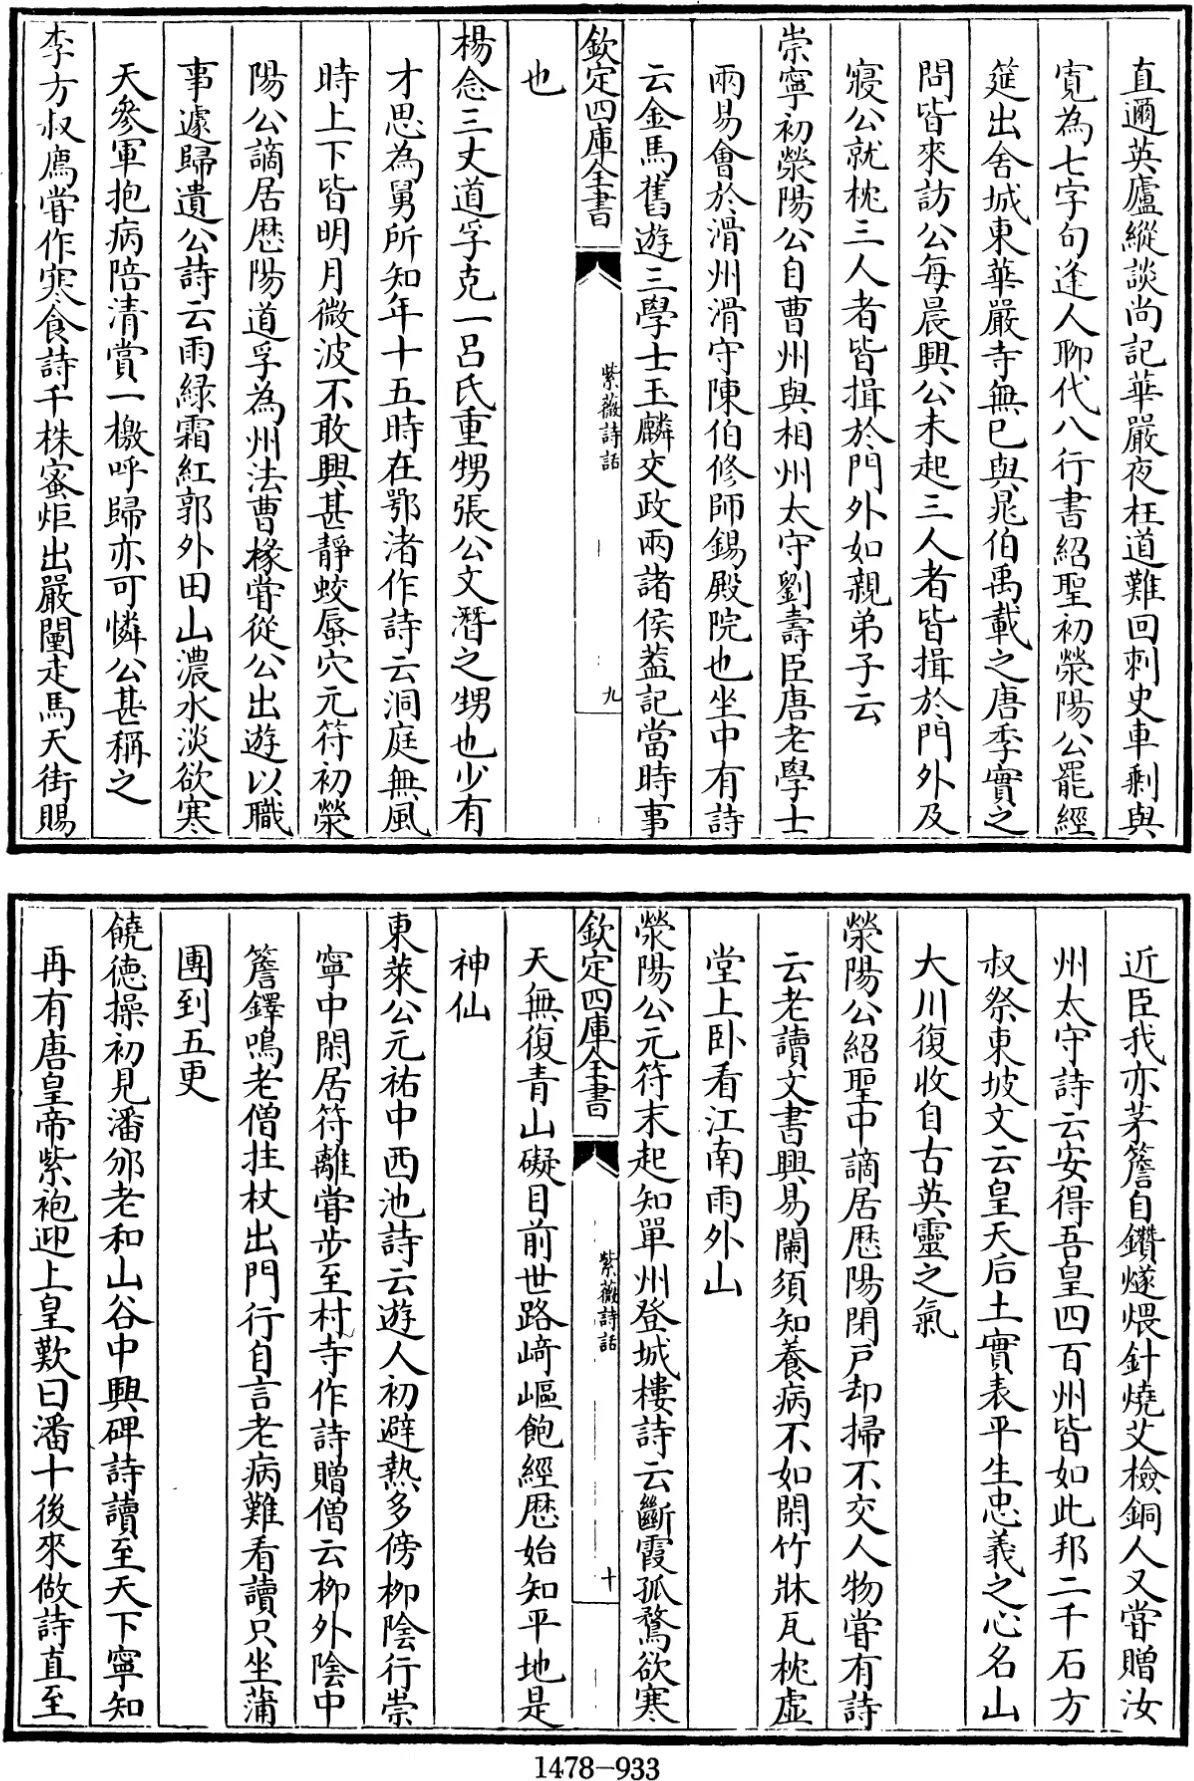 直邇英廬縱談尚記華嚴夜枉道難回刺史車剩與
寛為七字句逢人聊代八行書紹聖初滎陽公罷經
筵出舎城東華嚴寺無已與晁伯禹載之唐季實之
問皆來訪公每晨興公未起三人者皆揖於門外及
寢公就枕三人者皆揖於門外如親弟子云
崇寧初滎陽公自曹州與相州太守劉壽臣唐老學士
兩易會於滑州滑守陳伯修師錫殿院也坐中有詩
云金馬舊遊三學士玉麟交政兩諸侯葢記當時事
欽定四庫全書
紫薇詩話
九
也
楊念三丈道孚克一呂氏重甥張公文潛之甥也少有
才思為舅所知年十五時在鄂渚作詩云洞庭無風
時上下皆明月微波不敢興甚靜蛟蜃穴元符初滎
陽公謫居歴陽道孚為州法曹掾嘗從公出遊以職
事遽歸遺公詩云雨緑霜紅郭外田山濃水淡欲寒
天參軍抱病陪清賞一檄呼歸亦可憐公甚稱之
李方叔廌嘗作寒食詩千株蜜炬出嚴闉走馬天街賜
近臣我亦茅簷自鑽燧煨針燒艾檢銅人又嘗贈汝
州太守詩云安得吾皇四百州皆如此邦二千石方
叔祭東坡文云皇天后土實表平生忠義之心名山
大川復收自古英靈之氣
滎陽公紹聖中謫居歴陽閉戸却掃不交人物嘗有詩
云老讀文書興易闌須知養病不如閑竹牀瓦枕虚
堂上卧看江南雨外山
滎陽公元符末起知單州登城樓詩云斷霞孤鶩欲寒
欽定四庫全書
紫薇詩話
十
天無復青山礙目前世路崎嶇飽經歴始知平地是
神仙
東萊公元祐中西池詩云遊人初避熱多傍柳陰行崇
寧中閑居符離嘗步至村寺作詩贈僧云柳外陰中
簷鐸鳴老僧拄杖出門行自言老病難看讀只坐蒲
團到五更
饒德操初見潘邠老和山谷中興碑詩讀至天下寧知
再有唐皇帝紫袍迎上皇歎曰潘十後來做詩直至
1478-933